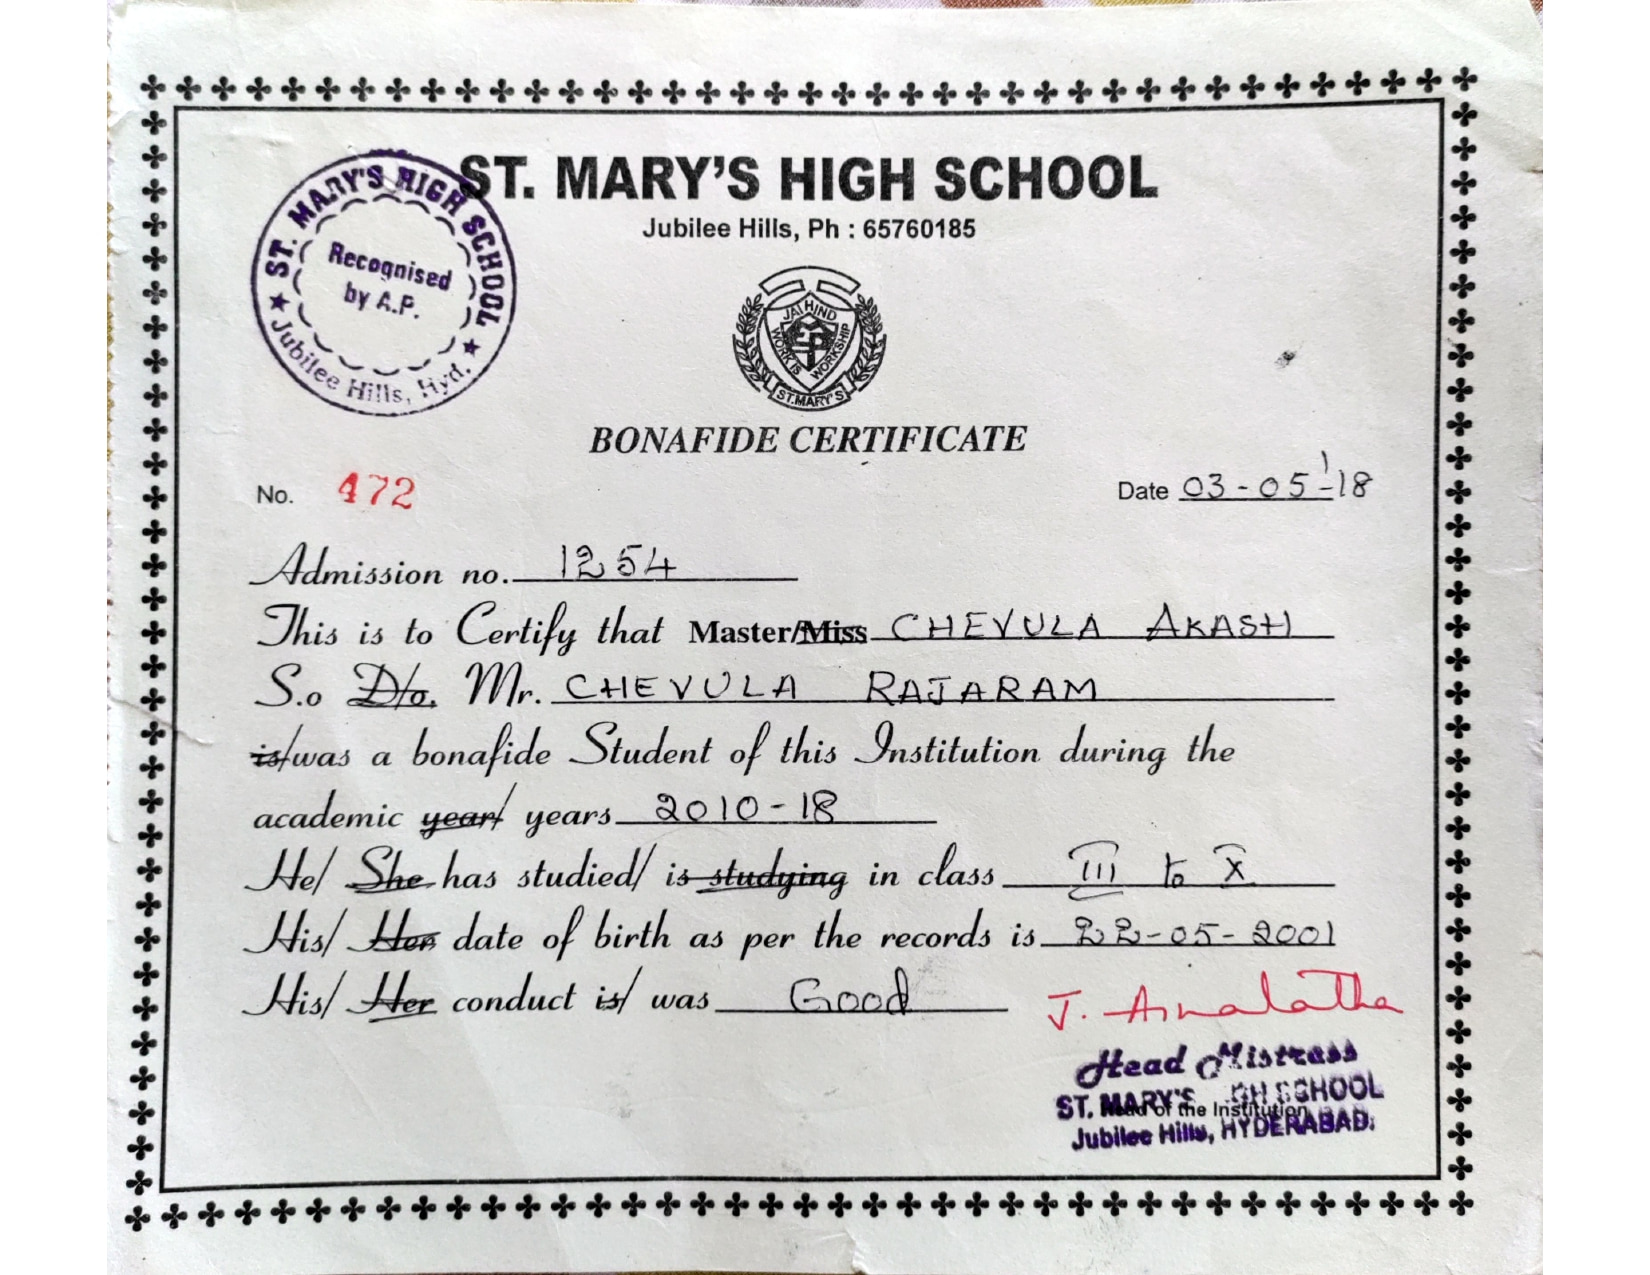 ST. MARY'S HIGH SCHOOL
Jubilee Hills, Ph : 65760185
ST. MARY'S HIGH SCHOOL
Recognised
by A.P.
★ Jubilee Hills, Hyd. ★
JAI HIND
WORK IS WORKSHIP
ST.MARY'S
BONAFIDE CERTIFICATE
No. 472 Date 03-05-18
Admission no. 1254
This is to Certify that Master/Miss CHEVULA AKASH
S.o D/o. Mr. CHEVULA RAJARAM
is/was a bonafide Student of this Institution during the
academic year/ years 2010-18
He/ She has studied/ is studying in class III to X
His/ Her date of birth as per the records is 22-05-2001
His/ Her conduct is/ was Good
J.
Head Mistress
ST. MARY'S HIGH SCHOOL
Head of the Institution
Jubilee Hills, HYDERABAD.